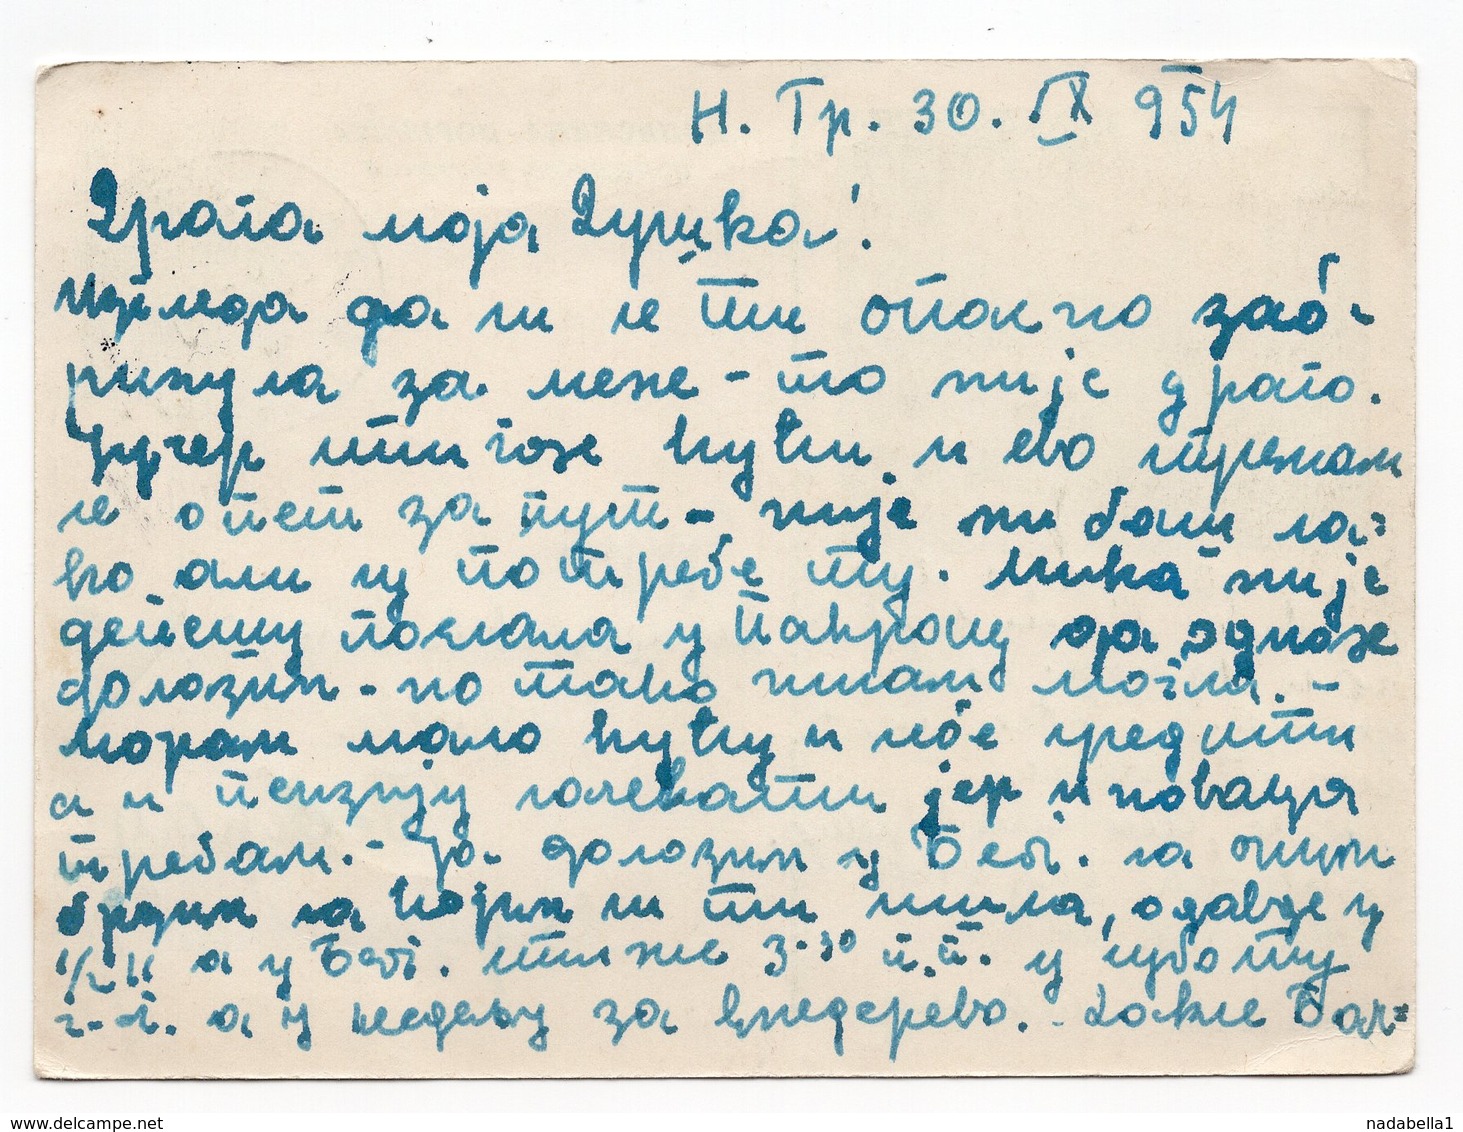 Н. Гр. 30. IX 954
Драга моја Душка!
Изгледа да си се ти опасно заб-
ринула за мене - то није драго.
Јучер стигох кући и ево спремам
се опет за пут - није ни баш ла=
ко али су потребе ту. Сика није
депешу послала у Панчеву да однохе
долазим - но тако нисам могла. -
Морам мало кућу и себе средити
а и пензију сачекати јер и новаца
требам. - Ја долазим у Беог. са оним
брзим са којим си ти ишла, одавде у
1/2 11 а у Беог. стиже 3.30 п.п. у суботу
2-г. а у недељу за Смедерево. - Дакле Вас=
nadabella1